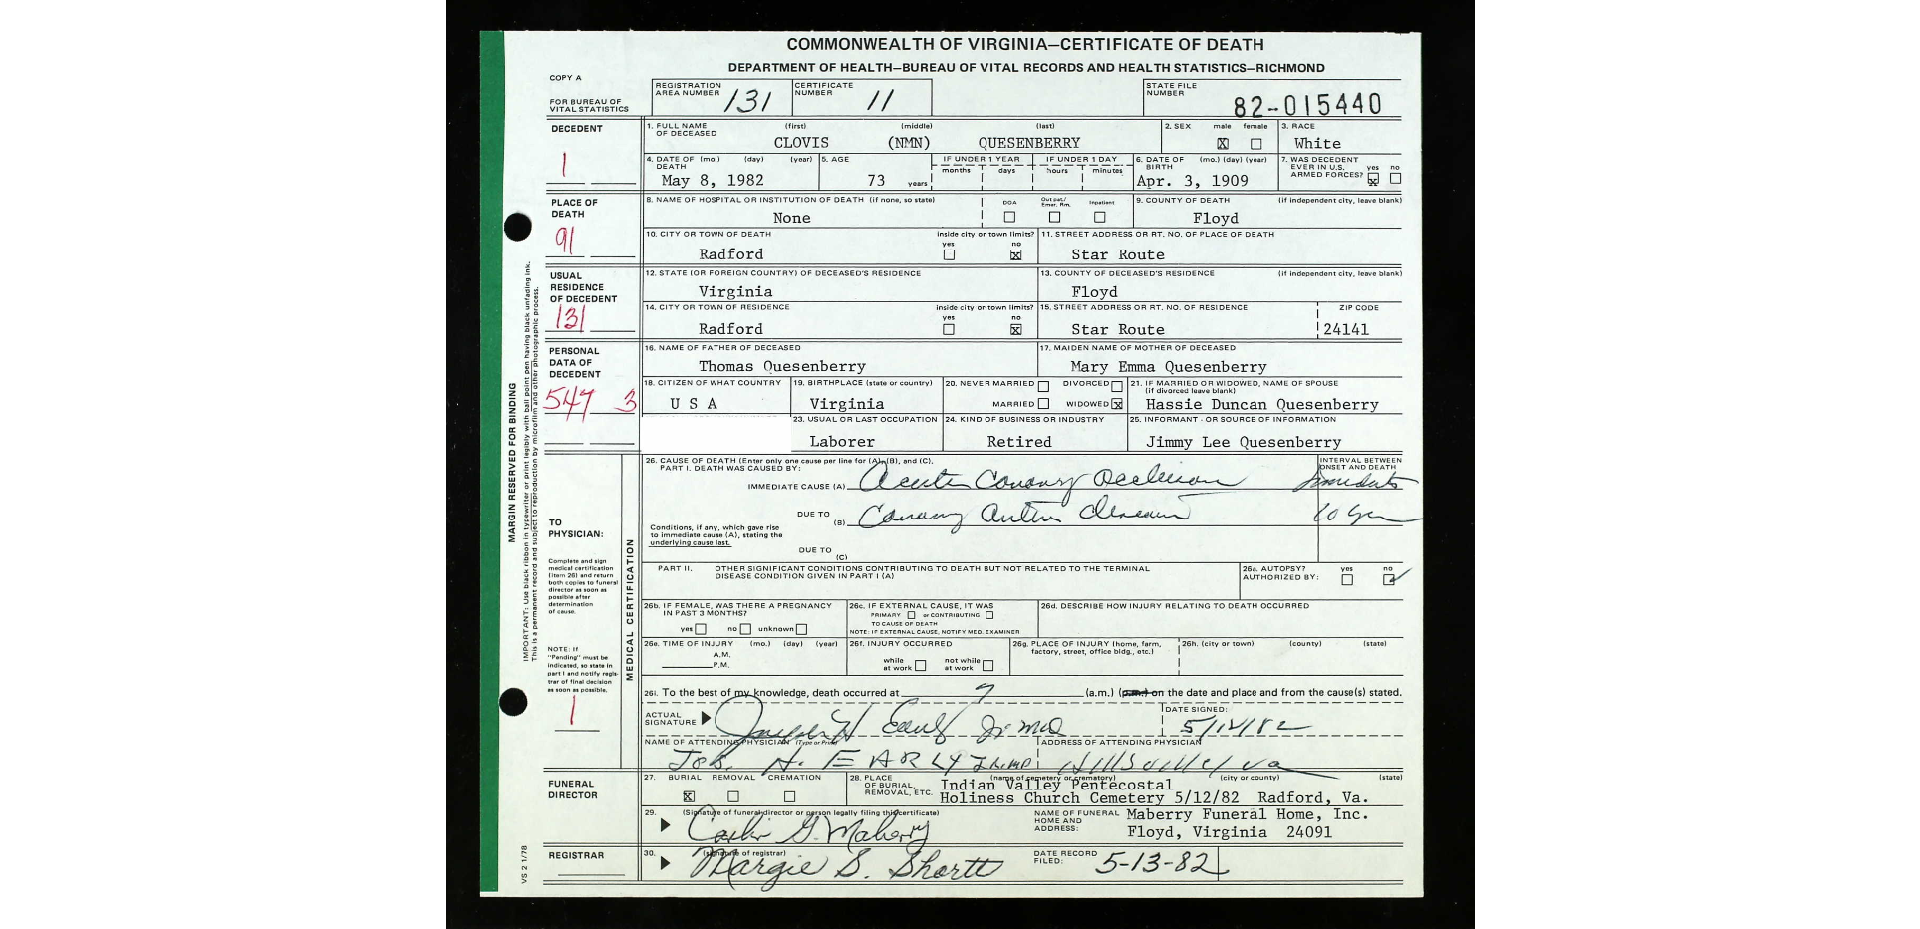 COMMONWEALTH OF VIRGINIA—CERTIFICATE OF DEATH
DEPARTMENT OF HEALTH—BUREAU OF VITAL RECORDS AND HEALTH STATISTICS—RICHMOND
COPY A
FOR BUREAU OF VITAL STATISTICS
REGISTRATION AREA NUMBER 131
CERTIFICATE NUMBER 11
STATE FILE NUMBER 82-015440
DECEDENT
1
1. FULL NAME OF DECEASED (first) (middle) (last)
CLOVIS (NMN) QUESENBERRY
2. SEX male female
X
3. RACE
White
4. DATE OF DEATH (mo) (day) (year)
May 8, 1982
5. AGE
73 years
IF UNDER 1 YEAR months days
IF UNDER 1 DAY hours minutes
6. DATE OF BIRTH (mo.) (day) (year)
Apr. 3, 1909
7. WAS DECEDENT EVER IN U.S. ARMED FORCES? yes no
X
PLACE OF DEATH
91
8. NAME OF HOSPITAL OR INSTITUTION OF DEATH (if none, so state)
None
DOA Out pat./ Emer. Rm. Inpatient
9. COUNTY OF DEATH (if independent city, leave blank)
Floyd
10. CITY OR TOWN OF DEATH inside city or town limits? yes no
Radford X
11. STREET ADDRESS OR RT. NO. OF PLACE OF DEATH
Star Route
USUAL RESIDENCE OF DECEDENT
131
12. STATE (OR FOREIGN COUNTRY) OF DECEASED'S RESIDENCE
Virginia
13. COUNTY OF DECEASED'S RESIDENCE (if independent city, leave blank)
Floyd
14. CITY OR TOWN OF RESIDENCE inside city or town limits? yes no
Radford X
15. STREET ADDRESS OR RT. NO. OF RESIDENCE
Star Route
ZIP CODE
24141
PERSONAL DATA OF DECEDENT
547 3
16. NAME OF FATHER OF DECEASED
Thomas Quesenberry
17. MAIDEN NAME OF MOTHER OF DECEASED
Mary Emma Quesenberry
18. CITIZEN OF WHAT COUNTRY
U S A
19. BIRTHPLACE (state or country)
Virginia
20. NEVER MARRIED DIVORCED
MARRIED WIDOWED X
21. IF MARRIED OR WIDOWED, NAME OF SPOUSE (if divorced leave blank)
Hassie Duncan Quesenberry
23. USUAL OR LAST OCCUPATION
Laborer
24. KIND OF BUSINESS OR INDUSTRY
Retired
25. INFORMANT - OR SOURCE OF INFORMATION
Jimmy Lee Quesenberry
MARGIN RESERVED FOR BINDING
IMPORTANT: Use black ribbon in typewriter or print legibly with ball point pen having black unfading ink.
This is a permanent record and subject to reproduction by microfilm and other photographic process.
MEDICAL CERTIFICATION
TO PHYSICIAN:
Complete and sign medical certification (item 26) and return both copies to funeral director as soon as possible after determination of cause.
NOTE: If "Pending" must be indicated, so state in part I and notify registrar of final decision as soon as possible.
1
26. CAUSE OF DEATH (Enter only one cause per line for (A), (B), and (C).
PART I. DEATH WAS CAUSED BY:
INTERVAL BETWEEN ONSET AND DEATH
IMMEDIATE CAUSE (A) Acute Coronary Occlusion Immediate
DUE TO (B) Coronary Artery Disease 10 yrs
Conditions, if any, which gave rise to immediate cause (A), stating the underlying cause last.
DUE TO (C)
PART II. OTHER SIGNIFICANT CONDITIONS CONTRIBUTING TO DEATH BUT NOT RELATED TO THE TERMINAL DISEASE CONDITION GIVEN IN PART I (A)
26a. AUTOPSY? AUTHORIZED BY: yes no
26b. IF FEMALE, WAS THERE A PREGNANCY IN PAST 3 MONTHS?
yes no unknown
26c. IF EXTERNAL CAUSE, IT WAS
PRIMARY or CONTRIBUTING
TO CAUSE OF DEATH
NOTE: IF EXTERNAL CAUSE, NOTIFY MED. EXAMINER
26d. DESCRIBE HOW INJURY RELATING TO DEATH OCCURRED
26e. TIME OF INJURY (mo.) (day) (year)
A.M.
P.M.
26f. INJURY OCCURRED
while at work not while at work
26g. PLACE OF INJURY (home, farm, factory, street, office bldg., etc.)
26h. (city or town) (county) (state)
26i. To the best of my knowledge, death occurred at 7 (a.m.) (p.m.) on the date and place and from the cause(s) stated.
ACTUAL SIGNATURE Joseph H Early Jr MD
DATE SIGNED:
5/12/82
NAME OF ATTENDING PHYSICIAN (Type or Print)
Jos. H. EARLY Jr MD
ADDRESS OF ATTENDING PHYSICIAN
Hillsville, Va
FUNERAL DIRECTOR
27. BURIAL REMOVAL CREMATION
X
28. PLACE OF BURIAL, REMOVAL, ETC. (name of cemetery or crematory) (city or county) (state)
Indian Valley Pentecostal
Holiness Church Cemetery 5/12/82 Radford, Va.
29. (Signature of funeral director or person legally filing this certificate)
G. Maberry
NAME OF FUNERAL HOME AND ADDRESS:
Maberry Funeral Home, Inc.
Floyd, Virginia 24091
REGISTRAR
30. (signature of registrar)
Margie S. Shortt
DATE RECORD FILED: 5-13-82
VS 2 1/78